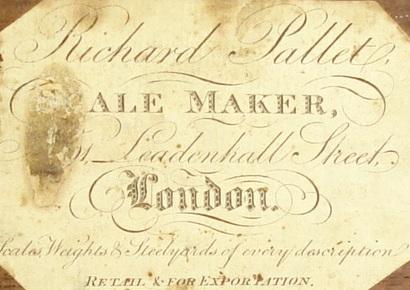 Richard Pallet.
SCALE MAKER,
51 Leadenhall Street,
London.
Scales, Weights & Steelyards of every description
RETAIL & FOR EXPORTATION.